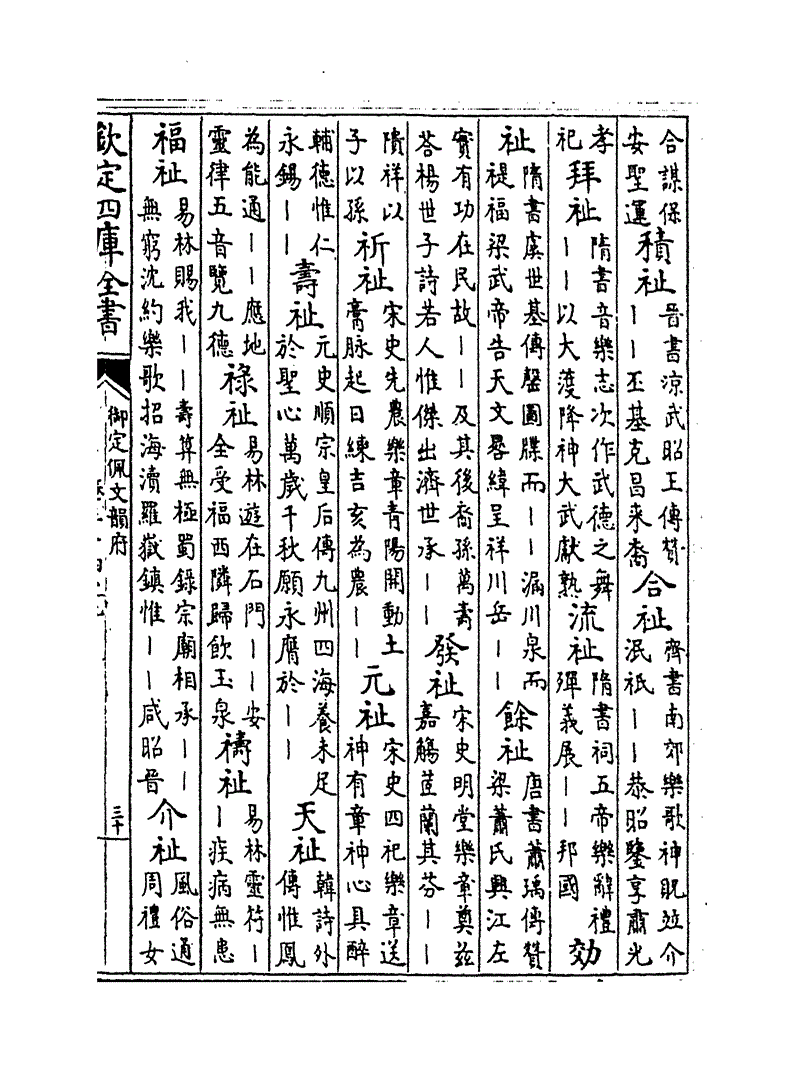 合謀保安聖運積祉晉書涼武昭王傳贊——丕基克昌来裔合祉齊書南郊樂歌神貺竝介泯祇——恭昭鑒享肅光
孝祀拜祉隋書音樂志次作武德之舞——以大濩降神大武獻熟流祉隋書祠五帝樂辭禮殫義展——邦國効
祉隋書虞世基傳罄圖牒而——漏川泉而禔福梁武帝告天文晷緯呈祥川岳——餘祉唐書蕭瑀傳贊梁蕭氏興江左
實有功在民故——及其後裔孫萬壽荅楊世子詩若人惟傑出濟世承——發祉宋史明堂樂章奠兹嘉觴茝蘭其芬——
隤祥以子以孫祈祉宋史先農樂章青陽開動土膏脉起日練吉亥為農——元祉宋史四祀樂章送神有章神心具醉
輔德惟仁永錫——壽祉元史順宗皇后傳九州四海養未足於聖心萬歲千秋願永膺於——天祉韓詩外傳惟鳳
為能通——應地靈律五音覽九德祿祉易林遊在石門——安全受福西隣歸飲玉泉禱祉易林靈符——疾病無患
福祉易林賜我——壽算無極蜀錄宗廟相承——無窮沈約樂歌招海瀆羅嶽鎮惟——咸昭晉介祉風俗通周禮女
欽定四庫全書
御定佩文韻府
三十